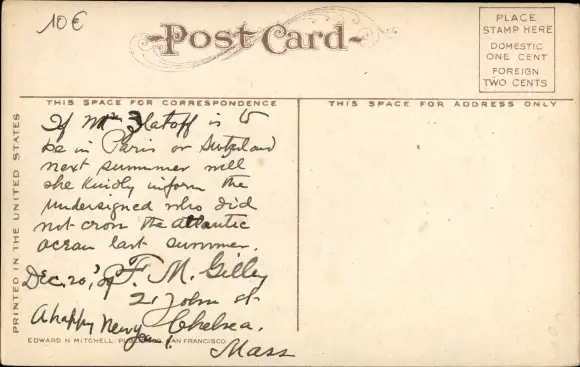 10€
Post Card
PLACE
STAMP HERE
DOMESTIC
ONE CENT
FOREIGN
TWO CENTS
THIS SPACE FOR CORRESPONDENCE
THIS SPACE FOR ADDRESS ONLY
PRINTED IN THE UNITED STATES
If Mrs Flatoff is to
be in Paris or Switzerland
next summer will
she kindly inform the
undersigned who did
not cross the atlantic
ocean last summer.
Dec. 20, '09 F. M. Gilley
21 John st.
Chelsea,
Mass
A happy New year.
EDWARD H. MITCHELL, PUBLISHER, SAN FRANCISCO